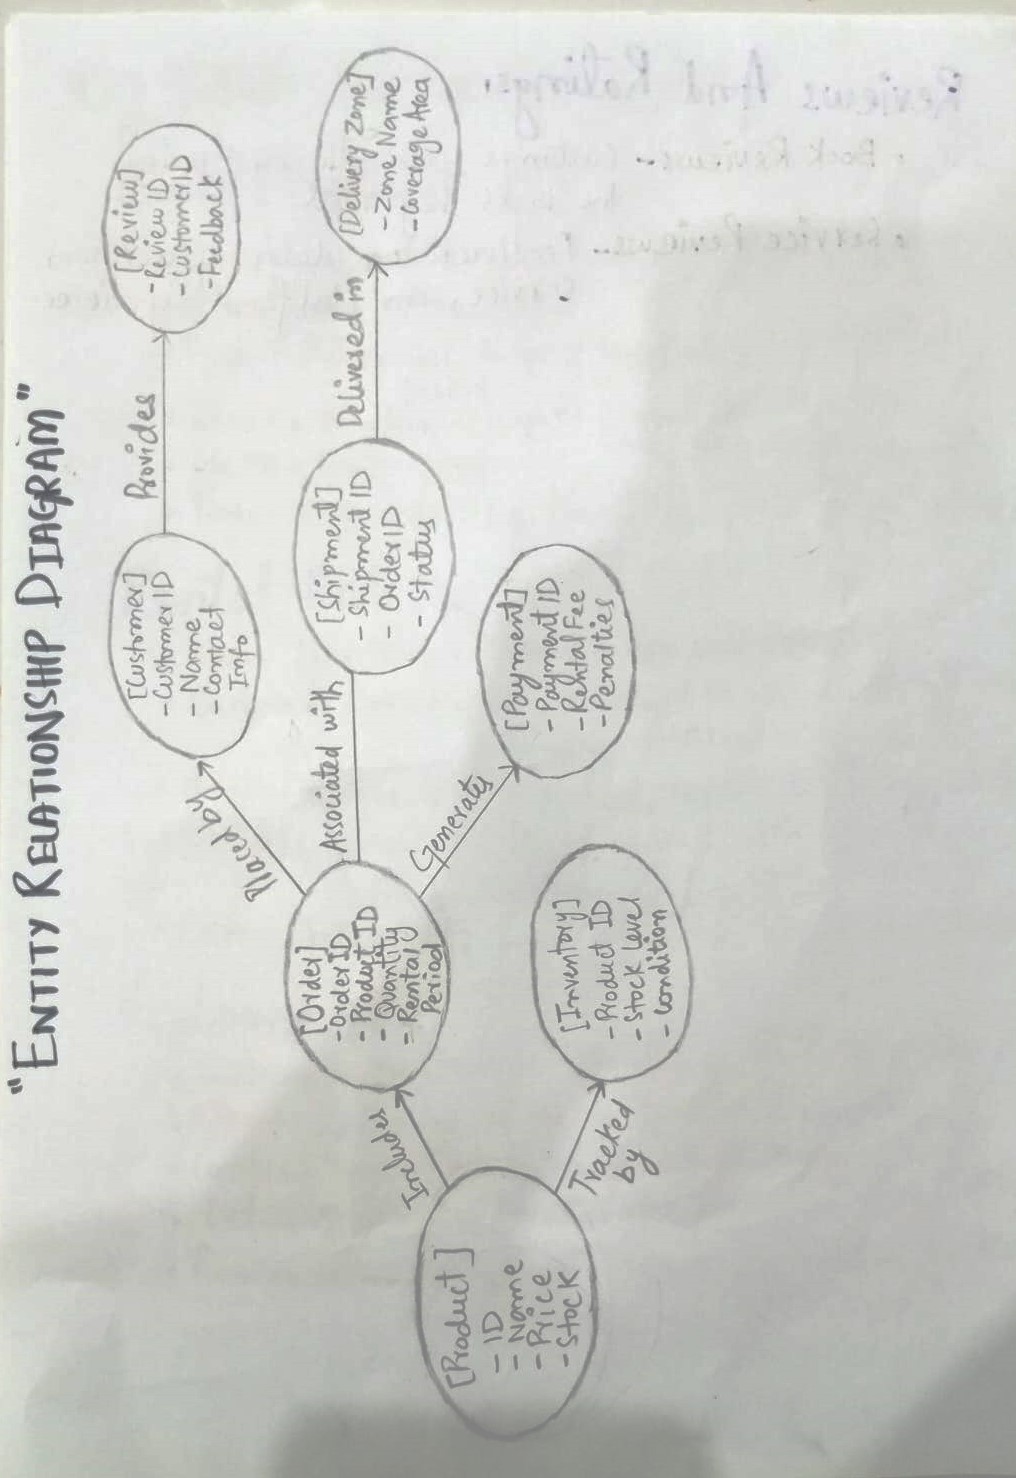 "ENTITY RELATIONSHIP DIAGRAM"
[Product]
- ID
- Name
- Price
- Stock
Includes
Tracked
by
[Order]
- Order ID
- Product ID
- Quantity
- Rental
Period
[Inventory]
- Product ID
- Stock Level
- Condition
Placed by
Associated with
Generates
[Customer]
- Customer ID
- Name
- Contact
Info
[Shipment]
- Shipment ID
- Order ID
- Status
[Payment]
- Payment ID
- Rental Fee
- Penalties
Provides
Delivered in
[Review]
- Review ID
- Customer ID
- Feedback
[Delivery Zone]
- Zone Name
- Coverage Area
Reviews And Ratings.
Book Reviews -
Service Reviews -